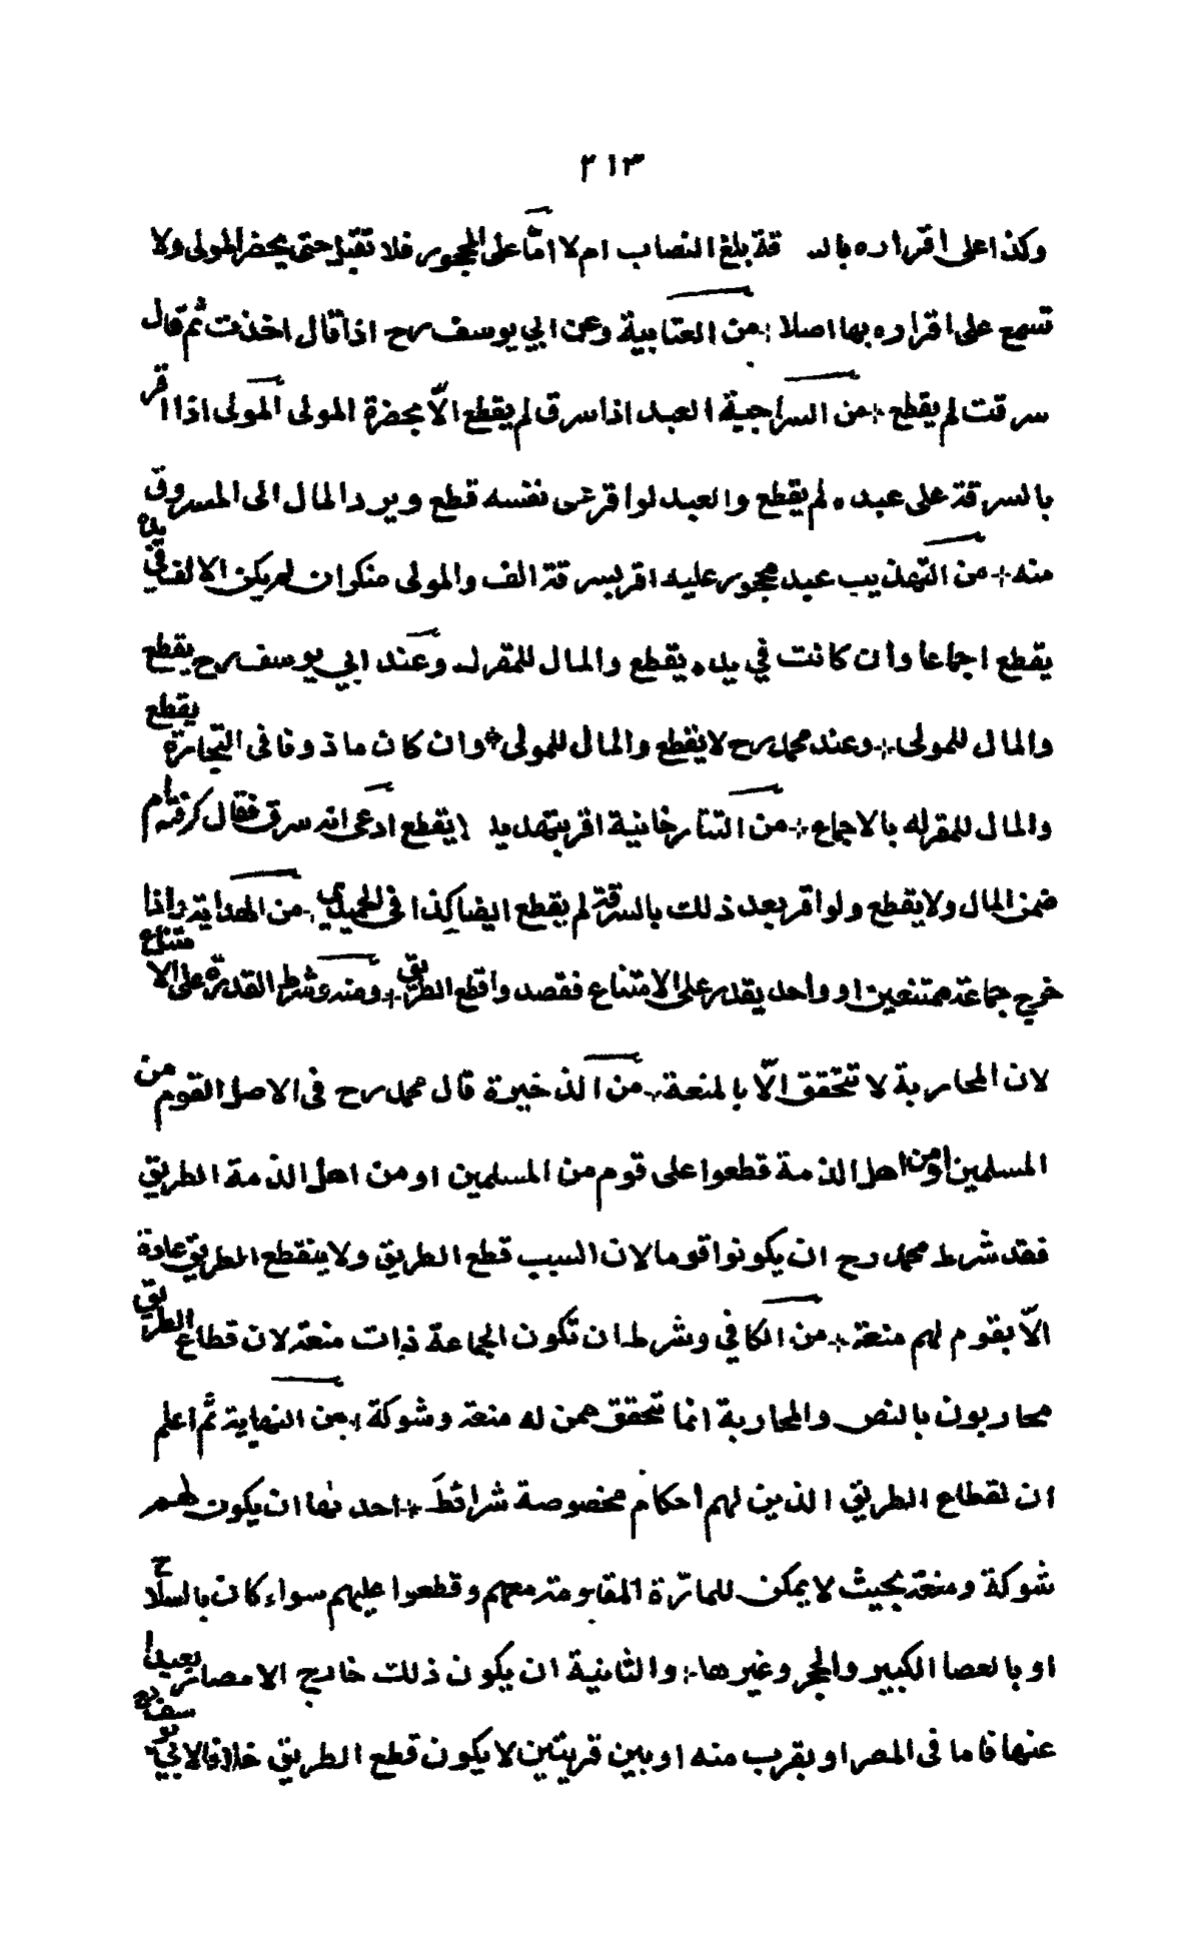 ٢١٣
وكذا على اقراره بالـ قة بلغ النصاب ام لا امّا على المحجور فلا تقبل حتى يحضر المولى ولا
تسمع على اقراره بها اصلا من العتابية وعن ابي يوسف رح اذا قال اخذت ثم قال
سرقت لم يقطع من السراجية العبد اذا سرق لم يقطع الّا بحضرة المولى المولى اذا اقر
بالسرقة على عبده لم يقطع والعبد لو اقر على نفسه قطع ويرد المال الى المسروق
منه من التهذيب عبد محجور عليه اقر بسرقة الف والمولى منكر ان لم يكن الالف في يده
يقطع اجماعا وان كانت في يده يقطع والمال للمقر له وعند ابي يوسف رح يقطع
والمال للمولى وعند محمد رح لا يقطع والمال للمولى وان كان ماذونا فى التجارة يقطع
والمال للمقر له بالاجماع من التتارخانية اقر بتهديد لا يقطع ادعى انه سرق فقال كرفته ام
ضمن المال ولا يقطع ولو اقر بعد ذلك بالسرقة لم يقطع ايضا كذا فى الحميدي من الهداية واذا
خرج جماعة ممتنعين او واحد يقدر على الامتناع فقصدوا قطع الطريق ومنه وشرط القدرة على الامتناع
لان المحاربة لا تتحقق الّا بالمنعة من الذخيرة قال محمد رح فى الاصل القوم من
المسلمين او من اهل الذمة قطعوا على قوم من المسلمين او من اهل الذمة الطريق
فقد شرط محمد رح ان يكونوا قوما لان السبب قطع الطريق ولا ينقطع الطريق عادة
الّا بقوم لهم منعة من الكافي وشرط ان تكون الجماعة ذات منعة لان قطاع الطريق
محاربون بالنص والمحاربة انما تتحقق ممن له منعة وشوكة من النهاية ثم اعلم
ان لقطاع الطريق الذين لهم احكام مخصوصة شرائط احدها ان يكون لهم
شوكة ومنعة بحيث لا يمكن للمارّة المقاومة معهم وقطعوا عليهم سواء كان بالسلاح
او بالعصا الكبير والحجر وغيرها والثانية ان يكون ذلك خارج الامصار بعيدا
عنها فاما فى المصر او بقرب منه او بين قريتين لا يكون قطع الطريق خلافا لابي يوسف رح